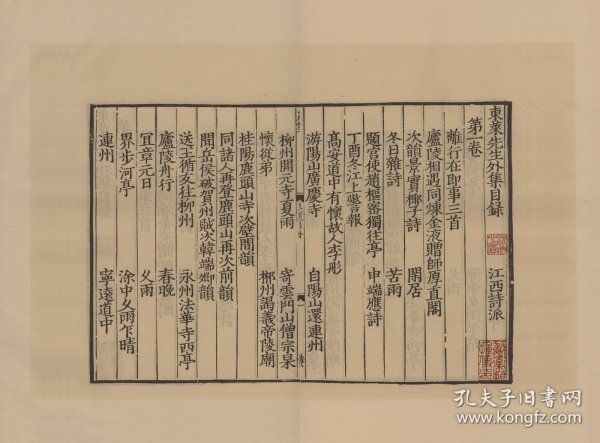 東萊先生外集目錄 江西詩派
第一卷
離行在即事三首
廬陵相遇同煉金液贈師厚直閣
次韻景實椰子詩 閑居
冬日雜詩 苦雨
題宮使趙樞密獨往亭 申端應詩
丁酉冬江上警報
高安道中有懷故人李彤
游陽山廣慶寺 自陽山還連州
柳州開元寺夏雨 寄雲門山僧宗杲
懷從弟 郴州謁義帝陵廟
桂陽鹿頭山寺次壁間韻
同諸人再登鹿頭山再次前韻
聞岳侯破賀州賊次韓端卿韻
送王循友往柳州 永州法華寺西亭
廬陵舟行 春晚
宜章元日 久雨
界步河亭 涂中久雨乍晴
連州 寧遠道中
孔夫子旧书网
www.kongfz.com